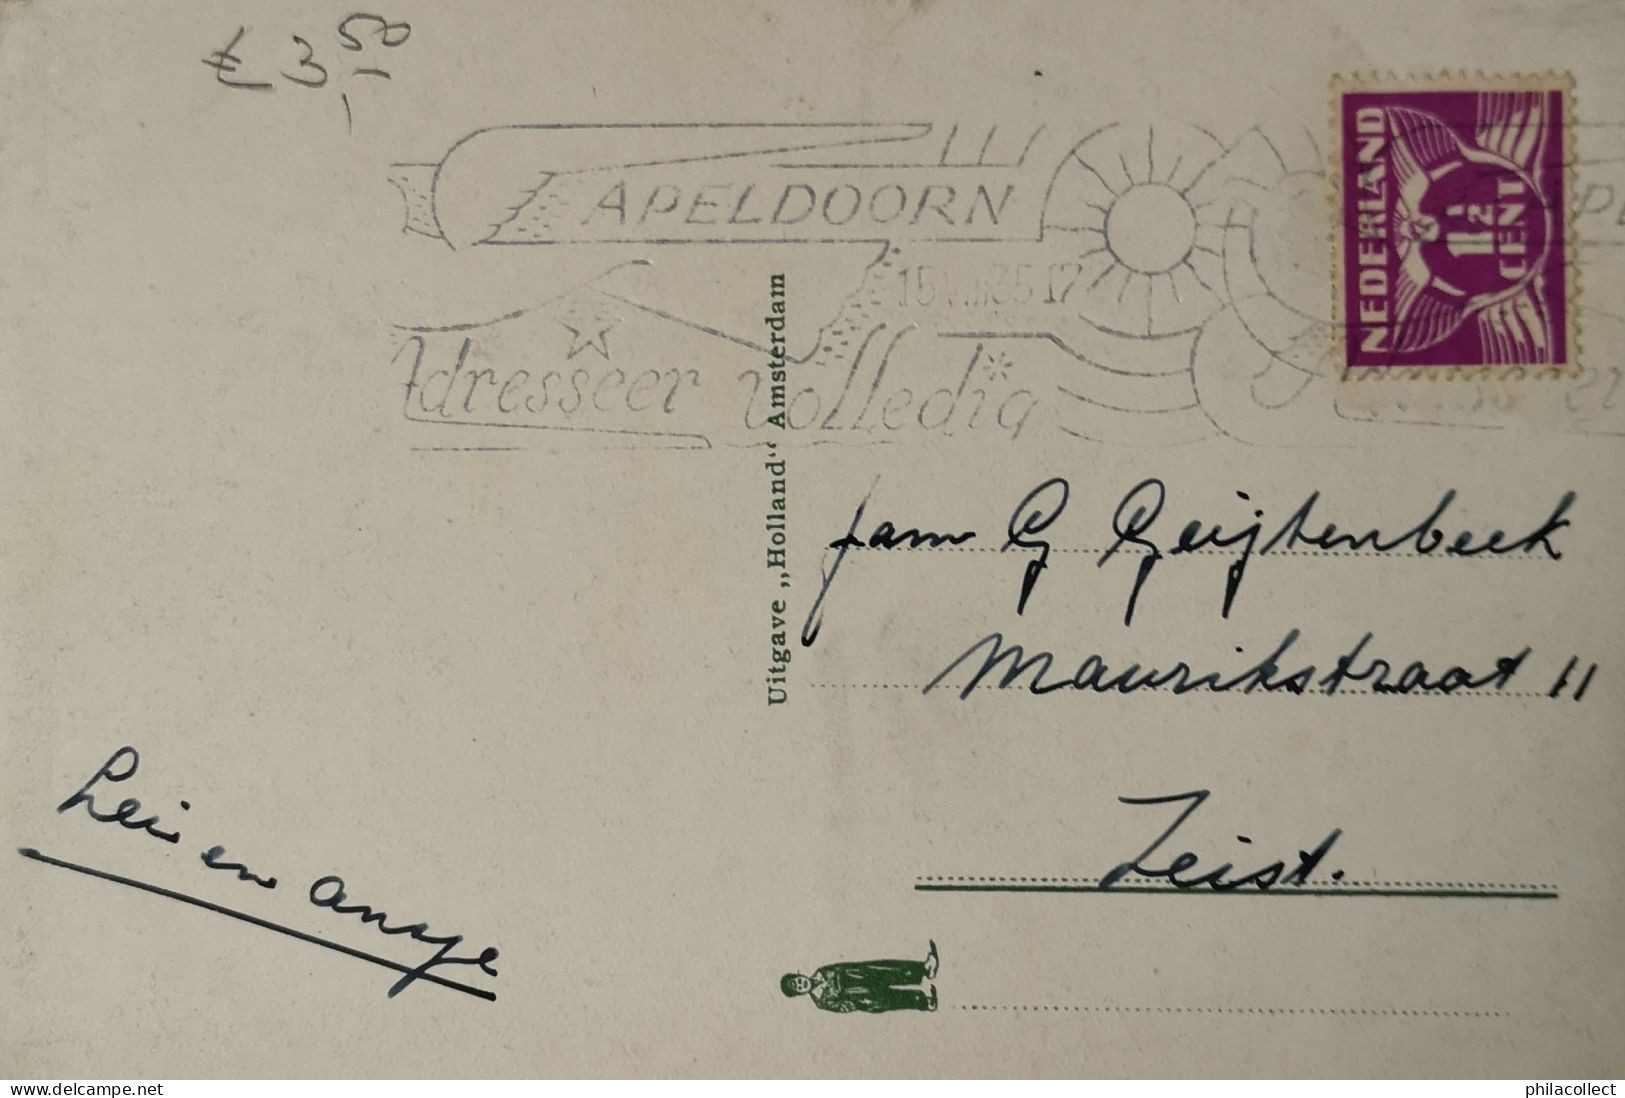 € 3,50
APELDOORN
Adresseer volledig
NEDERLAND
1½
CENT
Uitgave „Holland“ Amsterdam
fam G Geijtenbeek
Maurikstraat 11
Zeist.
en ansje
delcampe.net
philacollect